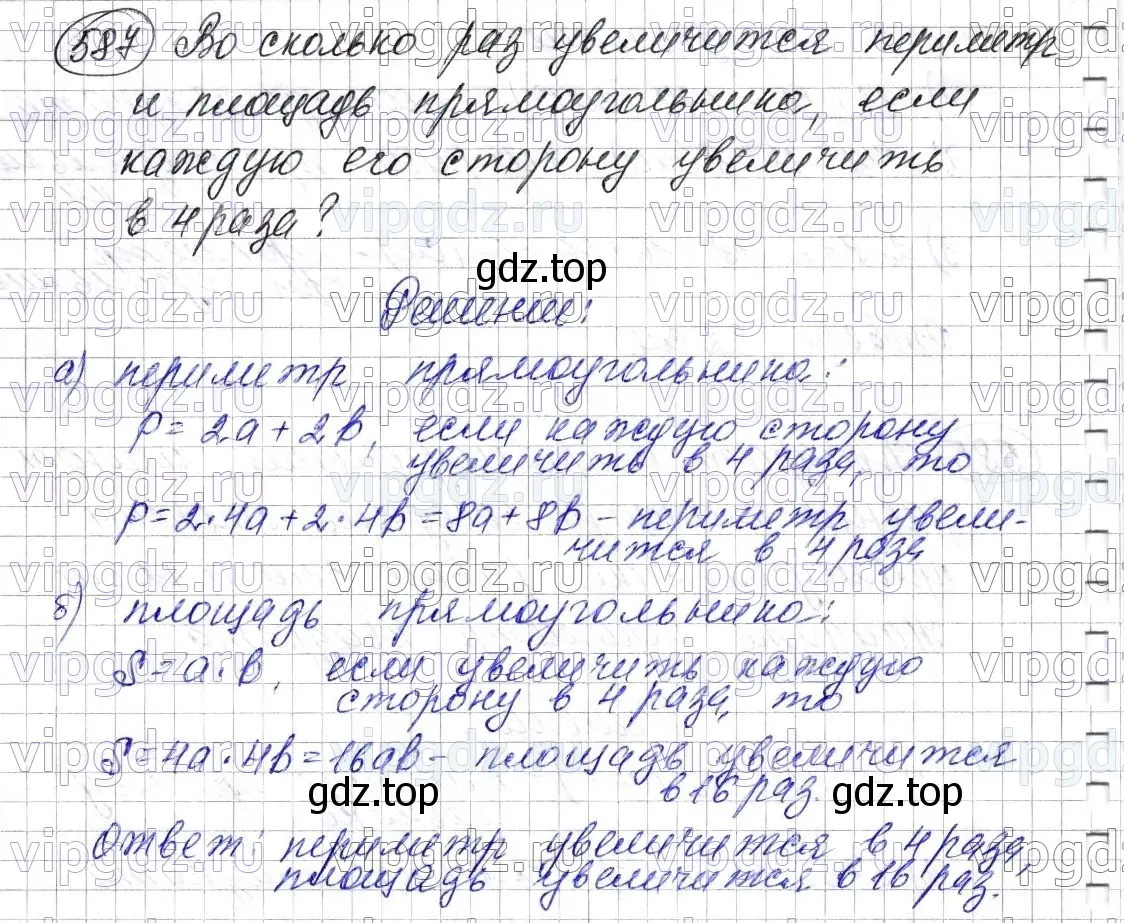 587 Во сколько раз увеличится периметр
и площадь прямоугольника, если
каждую его сторону увеличить
в 4 раза?
gdz.top
Решение:
а) периметр прямоугольника:
P = 2a + 2b, если каждую сторону
увеличить в 4 раза, то
P = 2·4a + 2·4b = 8a + 8b – периметр увели-
чится в 4 раза
б) площадь прямоугольника:
S = a·b, если увеличить каждую
сторону в 4 раза, то
S = 4a·4b = 16ab – площадь увеличится
в 16 раз.
gdz.top gdz.top
Ответ: периметр увеличится в 4 раза,
площадь увеличится в 16 раз.
vipgdz.ru